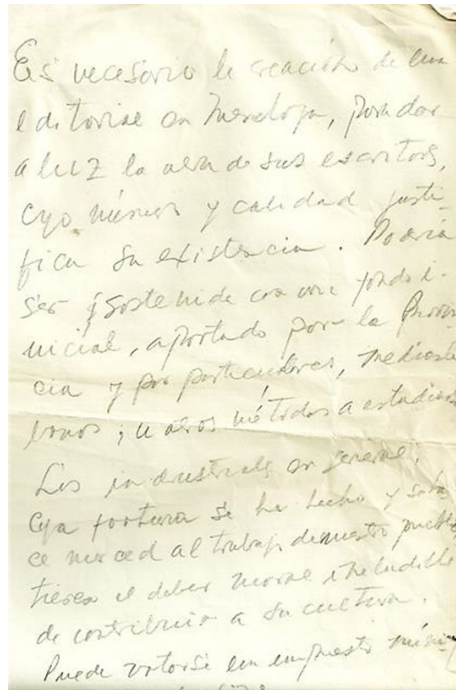 Es necesario la creación de una
editorial en Mendoza, para dar
a luz la obra de sus escritores,
cyo número y calidad justi-
fica su existencia. Podría
ser sostenida con un fondo i-
nicial, aportado por la Provin
cia y por particulares, mediante
bonos, u otros métodos a estudiar
Los industriales en general,
cya fortuna se ha hecho y
ce merced al trabajo de nuestro pueblo,
tienen el deber moral ineludible
de contribuir a su cultura.
Puede votarse un impuesto míni